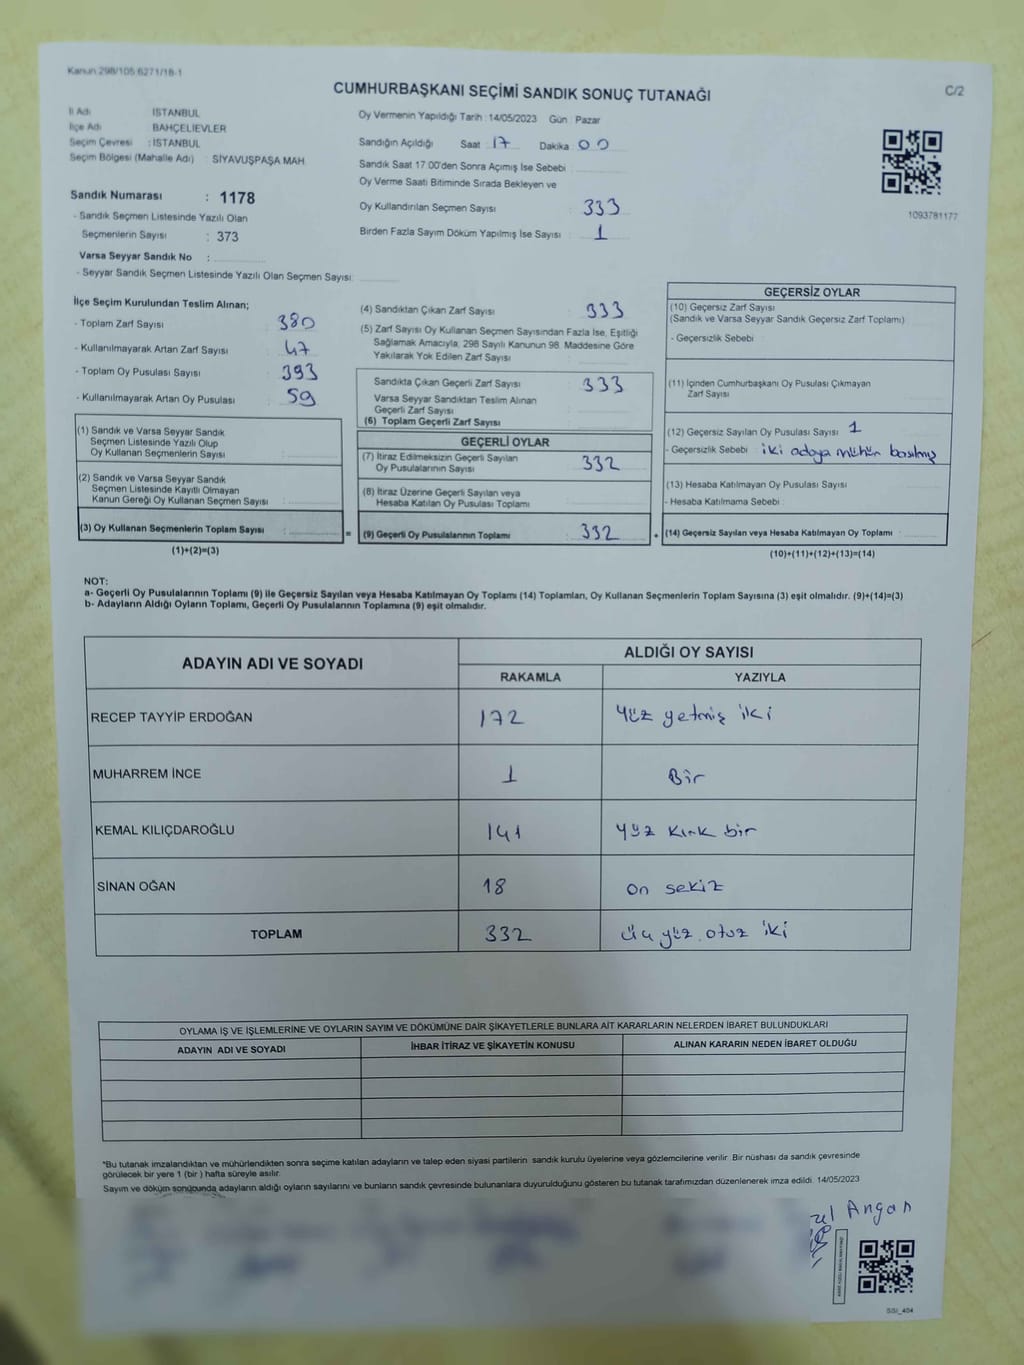 Kanun 298/105 6271/18-1
CUMHURBAŞKANI SEÇİMİ SANDIK SONUÇ TUTANAĞI
C/2
İl Adı ISTANBUL
İlçe Adı BAHÇELİEVLER
Seçim Çevresi : ISTANBUL
Seçim Bölgesi (Mahalle Adı) : SİYAVUŞPAŞA MAH.
Oy Vermenin Yapıldığı Tarih : 14/05/2023 Gün : Pazar
Sandığın Açıldığı Saat 17 Dakika 00
Sandık Saat 17.00'den Sonra Açımış İse Sebebi
Oy Verme Saati Bitiminde Sırada Bekleyen ve
Oy Kullandırılan Seçmen Sayısı : 333
Birden Fazla Sayım Döküm Yapılmış İse Sayısı : 1
1093781177
Sandık Numarası : 1178
- Sandık Seçmen Listesinde Yazılı Olan
Seçmenlerin Sayısı : 373
Varsa Seyyar Sandık No :
- Seyyar Sandık Seçmen Listesinde Yazılı Olan Seçmen Sayısı:
İlçe Seçim Kurulundan Teslim Alınan;
- Toplam Zarf Sayısı : 380
- Kullanılmayarak Artan Zarf Sayısı : 47
- Toplam Oy Pusulası Sayısı : 393
- Kullanılmayarak Artan Oy Pusulası : 59
(1) Sandık ve Varsa Seyyar Sandık
Seçmen Listesinde Yazılı Olup
Oy Kullanan Seçmenlerin Sayısı :
(2) Sandık ve Varsa Seyyar Sandık
Seçmen Listesinde Kayıtlı Olmayan
Kanun Gereği Oy Kullanan Seçmen Sayısı :
(3) Oy Kullanan Seçmenlerin Toplam Sayısı : =
(1)+(2)=(3)
(4) Sandıktan Çıkan Zarf Sayısı : 333
(5) Zarf Sayısı Oy Kullanan Seçmen Sayısından Fazla İse, Eşitliği
Sağlamak Amacıyla, 298 Sayılı Kanunun 98. Maddesine Göre
Yakılarak Yok Edilen Zarf Sayısı :
Sandıkta Çıkan Geçerli Zarf Sayısı : 333
Varsa Seyyar Sandıktan Teslim Alınan
Geçerli Zarf Sayısı
(6) Toplam Geçerli Zarf Sayısı
GEÇERLİ OYLAR
(7) İtiraz Edilmeksizin Geçerli Sayılan
Oy Pusulalarının Sayısı : 332
(8) İtiraz Üzerine Geçerli Sayılan veya
Hesaba Katılan Oy Pusulası Toplamı :
(9) Geçerli Oy Pusulalarının Toplamı : 332 +
GEÇERSİZ OYLAR
(10) Geçersiz Zarf Sayısı
(Sandık ve Varsa Seyyar Sandık Geçersiz Zarf Toplamı)
- Geçersizlik Sebebi
(11) İçinden Cumhurbaşkanı Oy Pusulası Çıkmayan
Zarf Sayısı
(12) Geçersiz Sayılan Oy Pusulası Sayısı : 1
- Geçersizlik Sebebi iki adaya mühür basılmış
(13) Hesaba Katılmayan Oy Pusulası Sayısı
- Hesaba Katılmama Sebebi
(14) Geçersiz Sayılan veya Hesaba Katılmayan Oy Toplamı :
(10)+(11)+(12)+(13)=(14)
NOT:
a- Geçerli Oy Pusulalarının Toplamı (9) ile Geçersiz Sayılan veya Hesaba Katılmayan Oy Toplamı (14) Toplamları, Oy Kullanan Seçmenlerin Toplam Sayısına (3) eşit olmalıdır. (9)+(14)=(3)
b- Adayların Aldığı Oyların Toplamı, Geçerli Oy Pusulalarının Toplamına (9) eşit olmalıdır.
ADAYIN ADI VE SOYADI ALDIĞI OY SAYISI
RAKAMLA YAZIYLA
RECEP TAYYİP ERDOĞAN 172 Yüz yetmiş iki
MUHARREM İNCE 1 Bir
KEMAL KILIÇDAROĞLU 141 Yüz kırk bir
SİNAN OĞAN 18 on sekiz
TOPLAM 332 üç yüz otuz iki
OYLAMA İŞ VE İŞLEMLERİNE VE OYLARIN SAYIM VE DÖKÜMÜNE DAİR ŞİKAYETLERLE BUNLARA AİT KARARLARIN NELERDEN İBARET BULUNDUKLARI
ADAYIN ADI VE SOYADI İHBAR İTİRAZ VE ŞİKAYETİN KONUSU ALINAN KARARIN NEDEN İBARET OLDUĞU
*Bu tutanak imzalandıktan ve mühürlendikten sonra seçime katılan adayların ve talep eden siyasi partilerin sandık kurulu üyelerine veya gözlemcilerine verilir. Bir nüshası da sandık çevresinde
görülecek bir yere 1 (bir) hafta süreyle asılır.
Sayım ve döküm sonucunda adayların aldığı oyların sayılarını ve bunların sandık çevresinde bulunanlara duyurulduğunu gösteren bu tutanak tarafımızdan düzenlenerek imza edildi. 14/05/2023
Angan
SSI_404